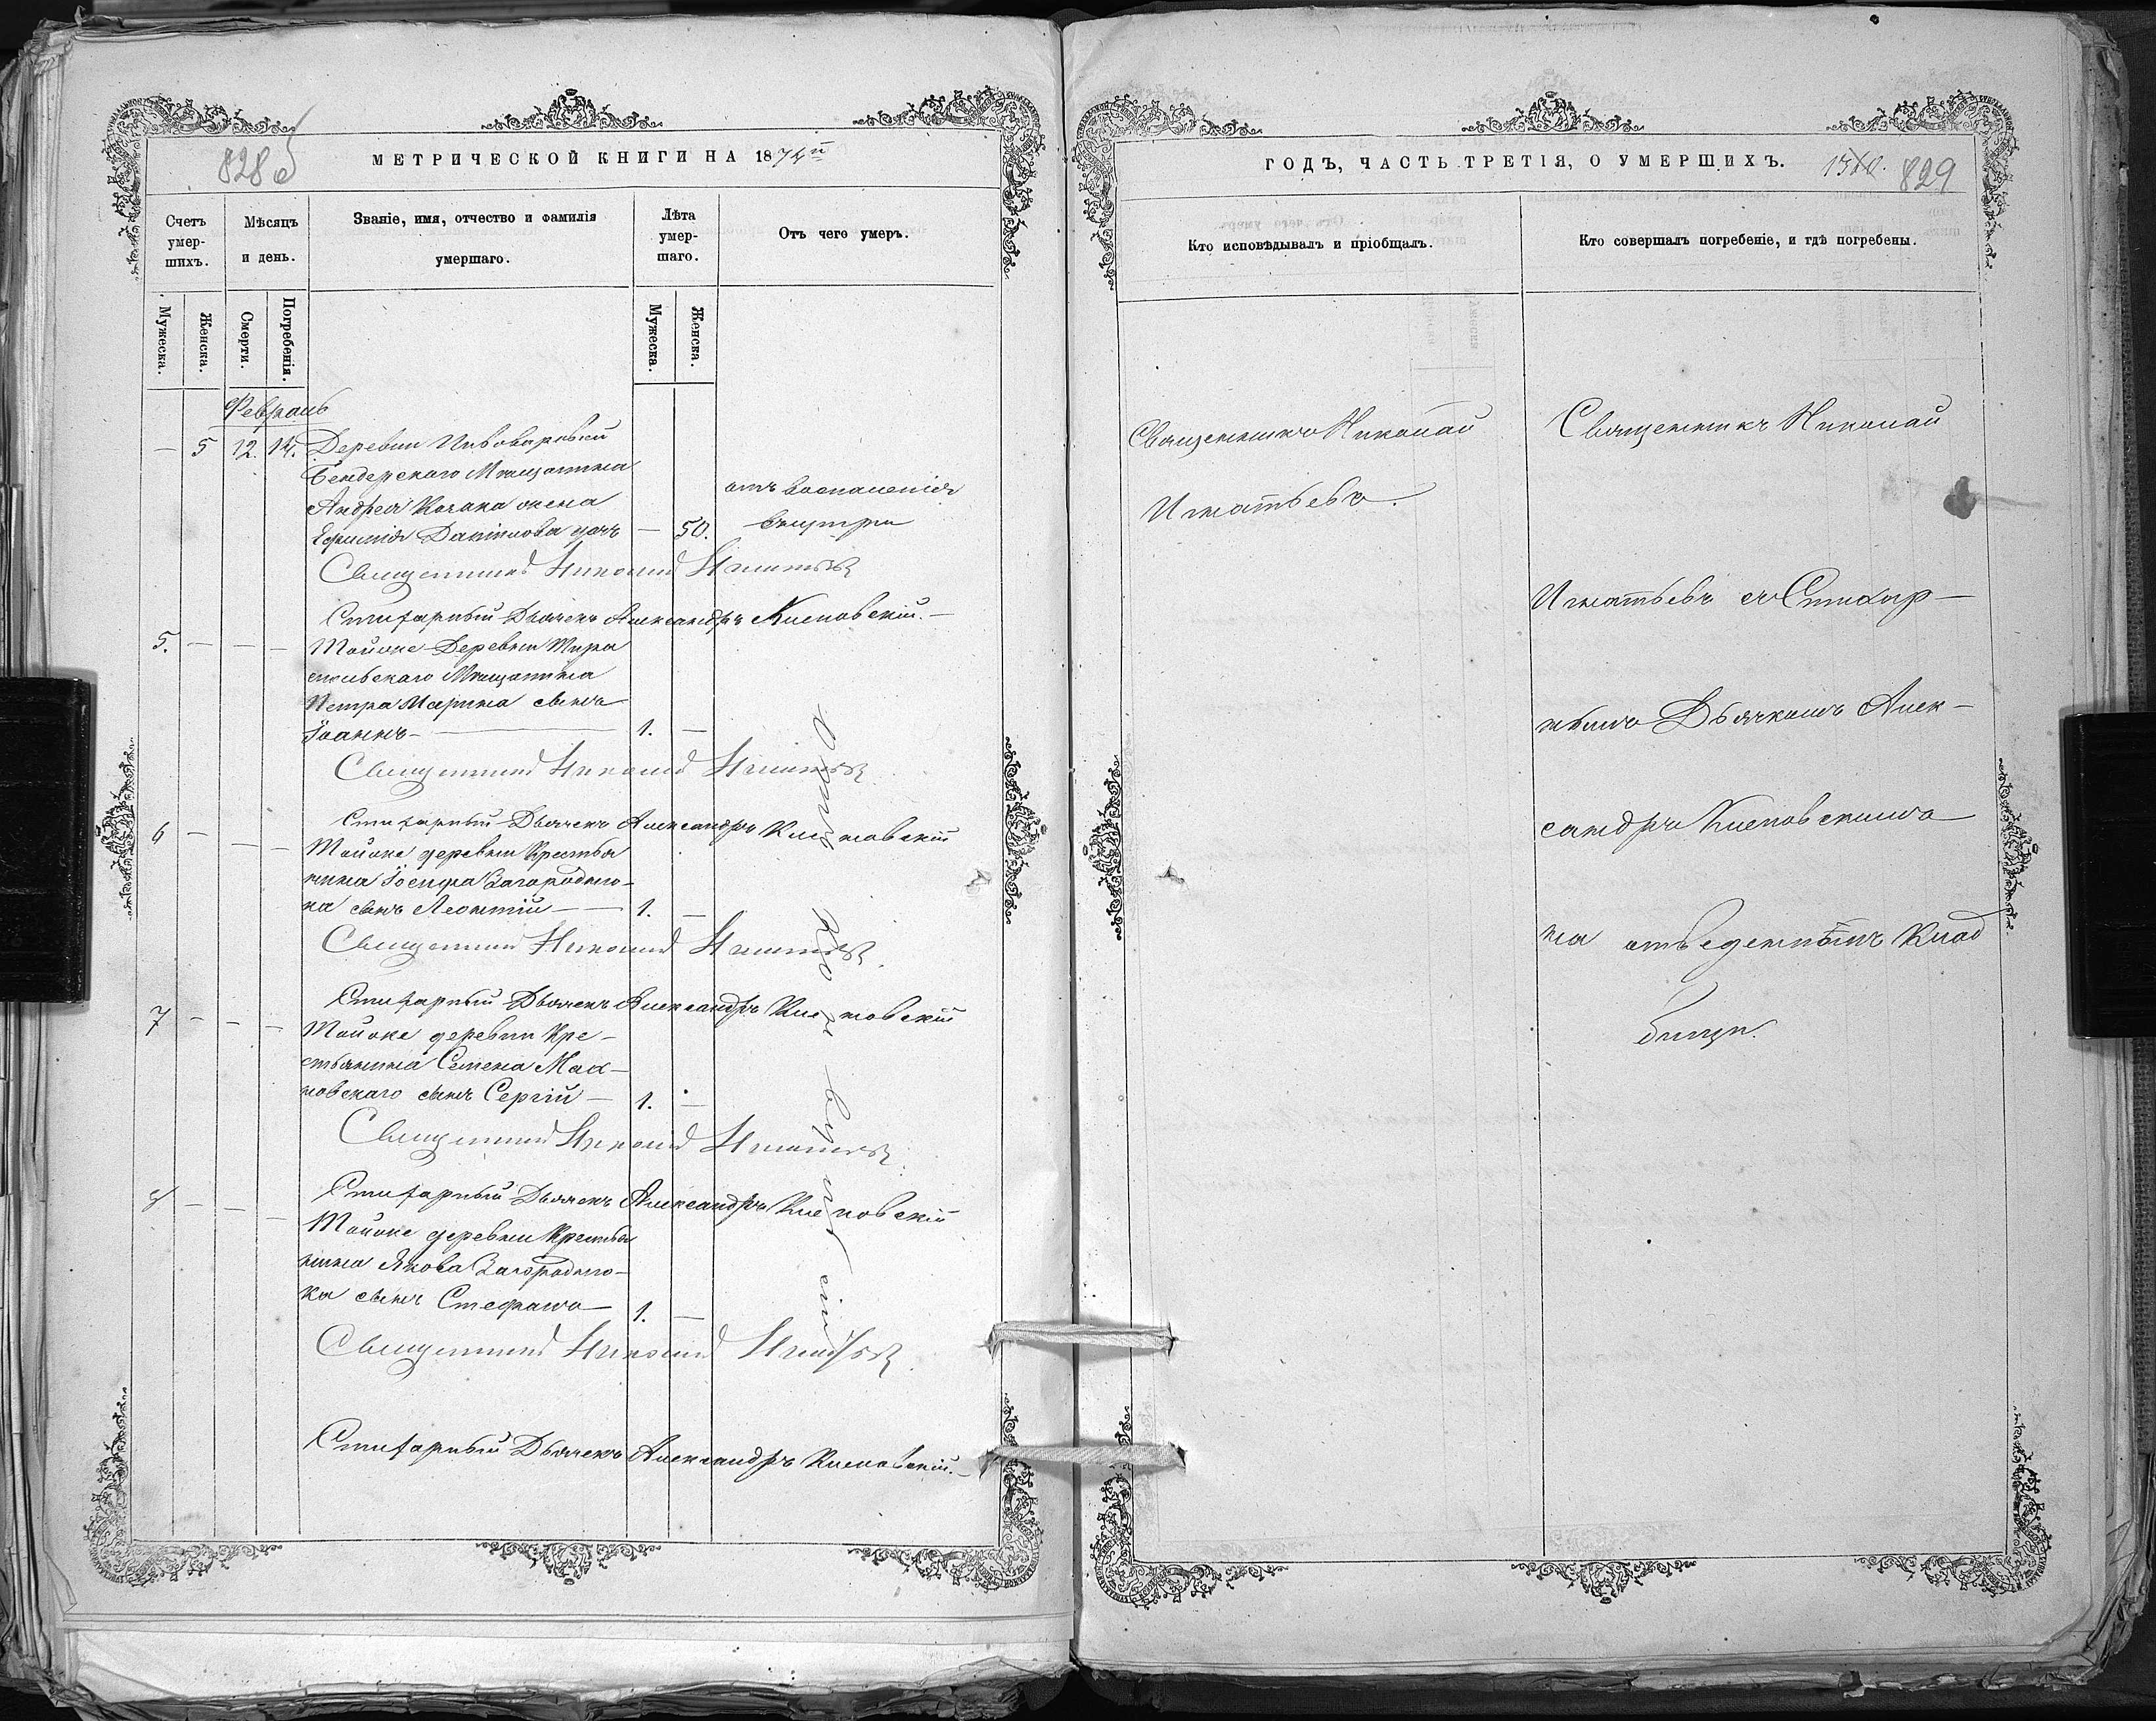 828 об
МЕТРИЧЕСКОЙ КНИГИ НА 1874й
Счетъ умер-шихъ.
Мѣсяцъ и день.
Званіе, имя, отчество и фамилія умершаго.
Лѣта умер-шаго.
Отъ чего умеръ.
Мужеска.
Женска.
Смерти.
Погребенія.
Мужеска.
Женска.
Февраль
— 5 12. 14. Деревни Пивоваровки
Бендерскаго Мещанина
Андрея Козака жена
Ефимія Даніилова дочь — 50.
отъ воспаленія
внутри
Священникъ Николай Игнатьевъ
Стихарный Дьячекъ Александръ Киеновскій. —
5. — — — Тойже Деревни Тира
спольскаго Мещанина
Петра Марина сынъ
Іоаннъ — 1. —
Священникъ Николай Игнатьевъ
Стихарный Дьячекъ Александръ
6 — — — Тойже деревни Крестья
нина Іосифа Загородню-
ка сынъ Леонтій — 1. —
Священникъ Николай Игнатьевъ.
Стихарный Дьячекъ Александръ
7 — — — Тойже деревни Кре-
стьянина Семена Мах-
новскаго сынъ Сергій — 1. —
Священникъ Николай Игнатьевъ.
Стихарный Дьячекъ Александръ
8 — — — Тойже деревни Крестья
нина Якова Загородню-
ка сынъ Стефанъ — 1. —
Священникъ Николай Игнатьевъ.
Стихарный Дьячекъ Александръ
ГОДЪ, ЧАСТЬ ТРЕТІЯ, О УМЕРШИХЪ.
829
Кто исповѣдывалъ и пріобщалъ.
Кто совершалъ погребеніе, и гдѣ погребены.
Священникъ Николай
Игнатьевъ.
Священникъ Николай
Игнатьевъ съ Стихар—
нымъ Дьячкомъ Алек—
сандръ
на отведенномъ Клад
бищи.